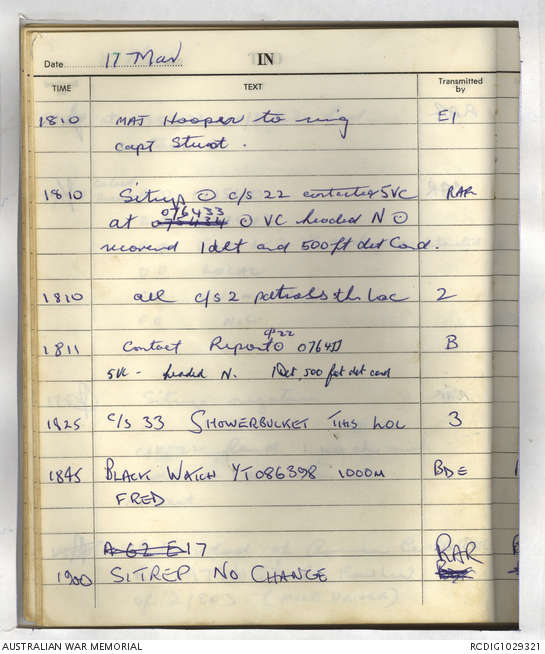 Date 17 Mar IN
TIME TEXT Transmitted by
1810 MAJ Hooper to ring E1
Capt Stuart .
1810 Sitrep ⊙ c/s 22 contacted 5VC RAR
076433
at 075434 ⊙ VC headed N ⊙
recovered 1 det and 500ft det Cord.
1810 all c/s 2 patrols this Loc 2
1811 Contact Report ⊙ 0764 B
5VC - headed N. 1Det, 500 feet det cord
1825 C/S 33 SHOWERBUCKET THIS LOC 3
1845 BLACK WATCH YT086398 1000M BDE
FRED
A 62 E 17 RAR
1900 SITREP NO CHANGE
AUSTRALIAN WAR MEMORIAL RCDIG1029321